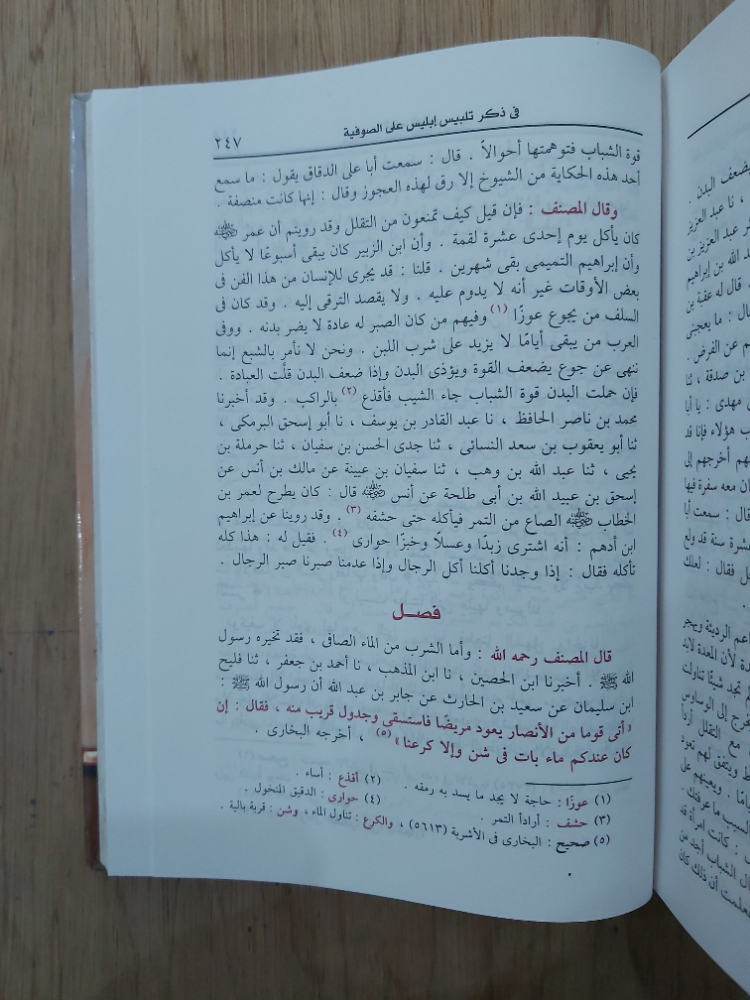 فى ذكر تلبيس إبليس على الصوفية
٢٤٧
قوة الشباب فتوهمتها أحوالاً . قال : سمعت أبا على الدقاق يقول : ما سمع
أحد هذه الحكاية من الشيوخ إلا رق لهذه العجوز وقال : إنها كانت منصفة .
وقال المصنف : فإن قيل كيف تمنعون من التقلل وقد رويتم أن عمر ﷺ
كان يأكل يوم إحدى عشرة لقمة . وأن ابن الزبير كان يبقى أسبوعًا لا يأكل
وأن إبراهيم التميمى بقى شهرين . قلنا : قد يجرى للإنسان من هذا الفن فى
بعض الأوقات غير أنه لا يدوم عليه . ولا يقصد الترقى إليه . وقد كان فى
السلف من يجوع عوزًا (١) وفيهم من كان الصبر له عادة لا يضر بدنه . ووفى
العرب من يبقى أيامًا لا يزيد على شرب اللبن . ونحن لا نأمر بالشبع إنما
ننهى عن جوع يضعف القوة ويؤذى البدن وإذا ضعف البدن قلَّت العبادة .
فإن حملت البدن قوة الشباب جاء الشيب فأقذع (٢) بالراكب . وقد أخبرنا
محمد بن ناصر الحافظ ، نا عبد القادر بن يوسف ، نا أبو إسحق البرمكى ،
ثنا أبو يعقوب بن سعد النسائى ، ثنا جدى الحسن بن سفيان ، ثنا حرملة بن
يحيى ، ثنا عبد الله بن وهب ، ثنا سفيان بن عيينة عن مالك بن أنس عن
إسحق بن عبيد الله بن أبى طلحة عن أنس ﷺ قال : كان يطرح لعمر بن
الخطاب ﷺ الصاع من التمر فيأكله حتى حشفه (٣) . وقد روينا عن إبراهيم
ابن أدهم : أنه اشترى زبدًا وعسلاً وخبزًا حوارى (٤) . فقيل له : هذا كله
تأكله فقال : إذا وجدنا أكلنا أكل الرجال وإذا عدمنا صبرنا صبر الرجال .
فصل
قال المصنف رحمه الله : وأما الشرب من الماء الصافى ، فقد تخيره رسول
الله ﷺ . أخبرنا ابن الحصين ، نا ابن المذهب ، نا أحمد بن جعفر ، ثنا فليح
ابن سليمان عن سعيد بن الحارث عن جابر بن عبد الله أن رسول الله ﷺ :
« أتى قوما من الأنصار يعود مريضًا فاستسقى وجدول قريب منه ، فقال : إن
كان عندكم ماء بات فى شن وإلا كرعنا » (٥) ، أخرجه البخارى .
(١) عوزًا : حاجة لا يجد ما يسد به رمقه . (٢) أقذع : أساء .
(٣) حشف : أرادأ التمر . (٤) حوارى : الدقيق المنخول .
(٥) صحيح : البخارى فى الأشربة (٥٦١٣) ، والكرع : تناول الماء ، وشن : قربة بالية .